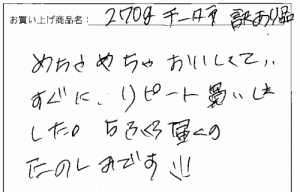 お買い上げ商品名: 270g チータラ 訳あり品
めちゃめちゃおいしくて、、
すぐに、リピート買いしま
した。もろもろ届くの
たのしみです!!